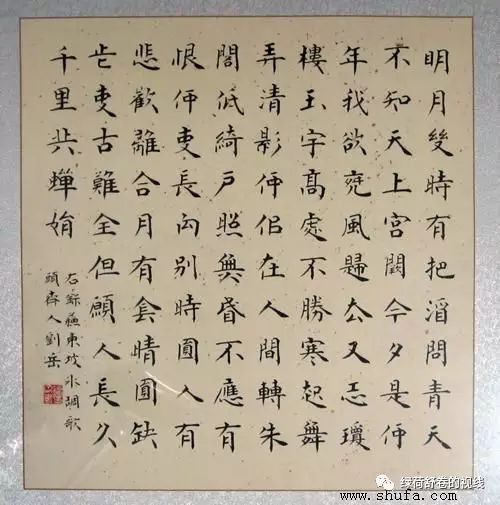 明月幾時有把酒問青天
不知天上宮闕今夕是何
年我欲乘風歸去又恐瓊
樓玉宇高處不勝寒起舞
弄清影何似在人間轉朱
閣低綺戶照無眠不應有
恨何事長向別時圓人有
悲歡離合月有陰晴圓缺
此事古難全但願人長久
千里共嬋娟
右錄蘇東坡水調歌
頭齊人劉岳
绿荷舒卷的视线
www.shufa.com